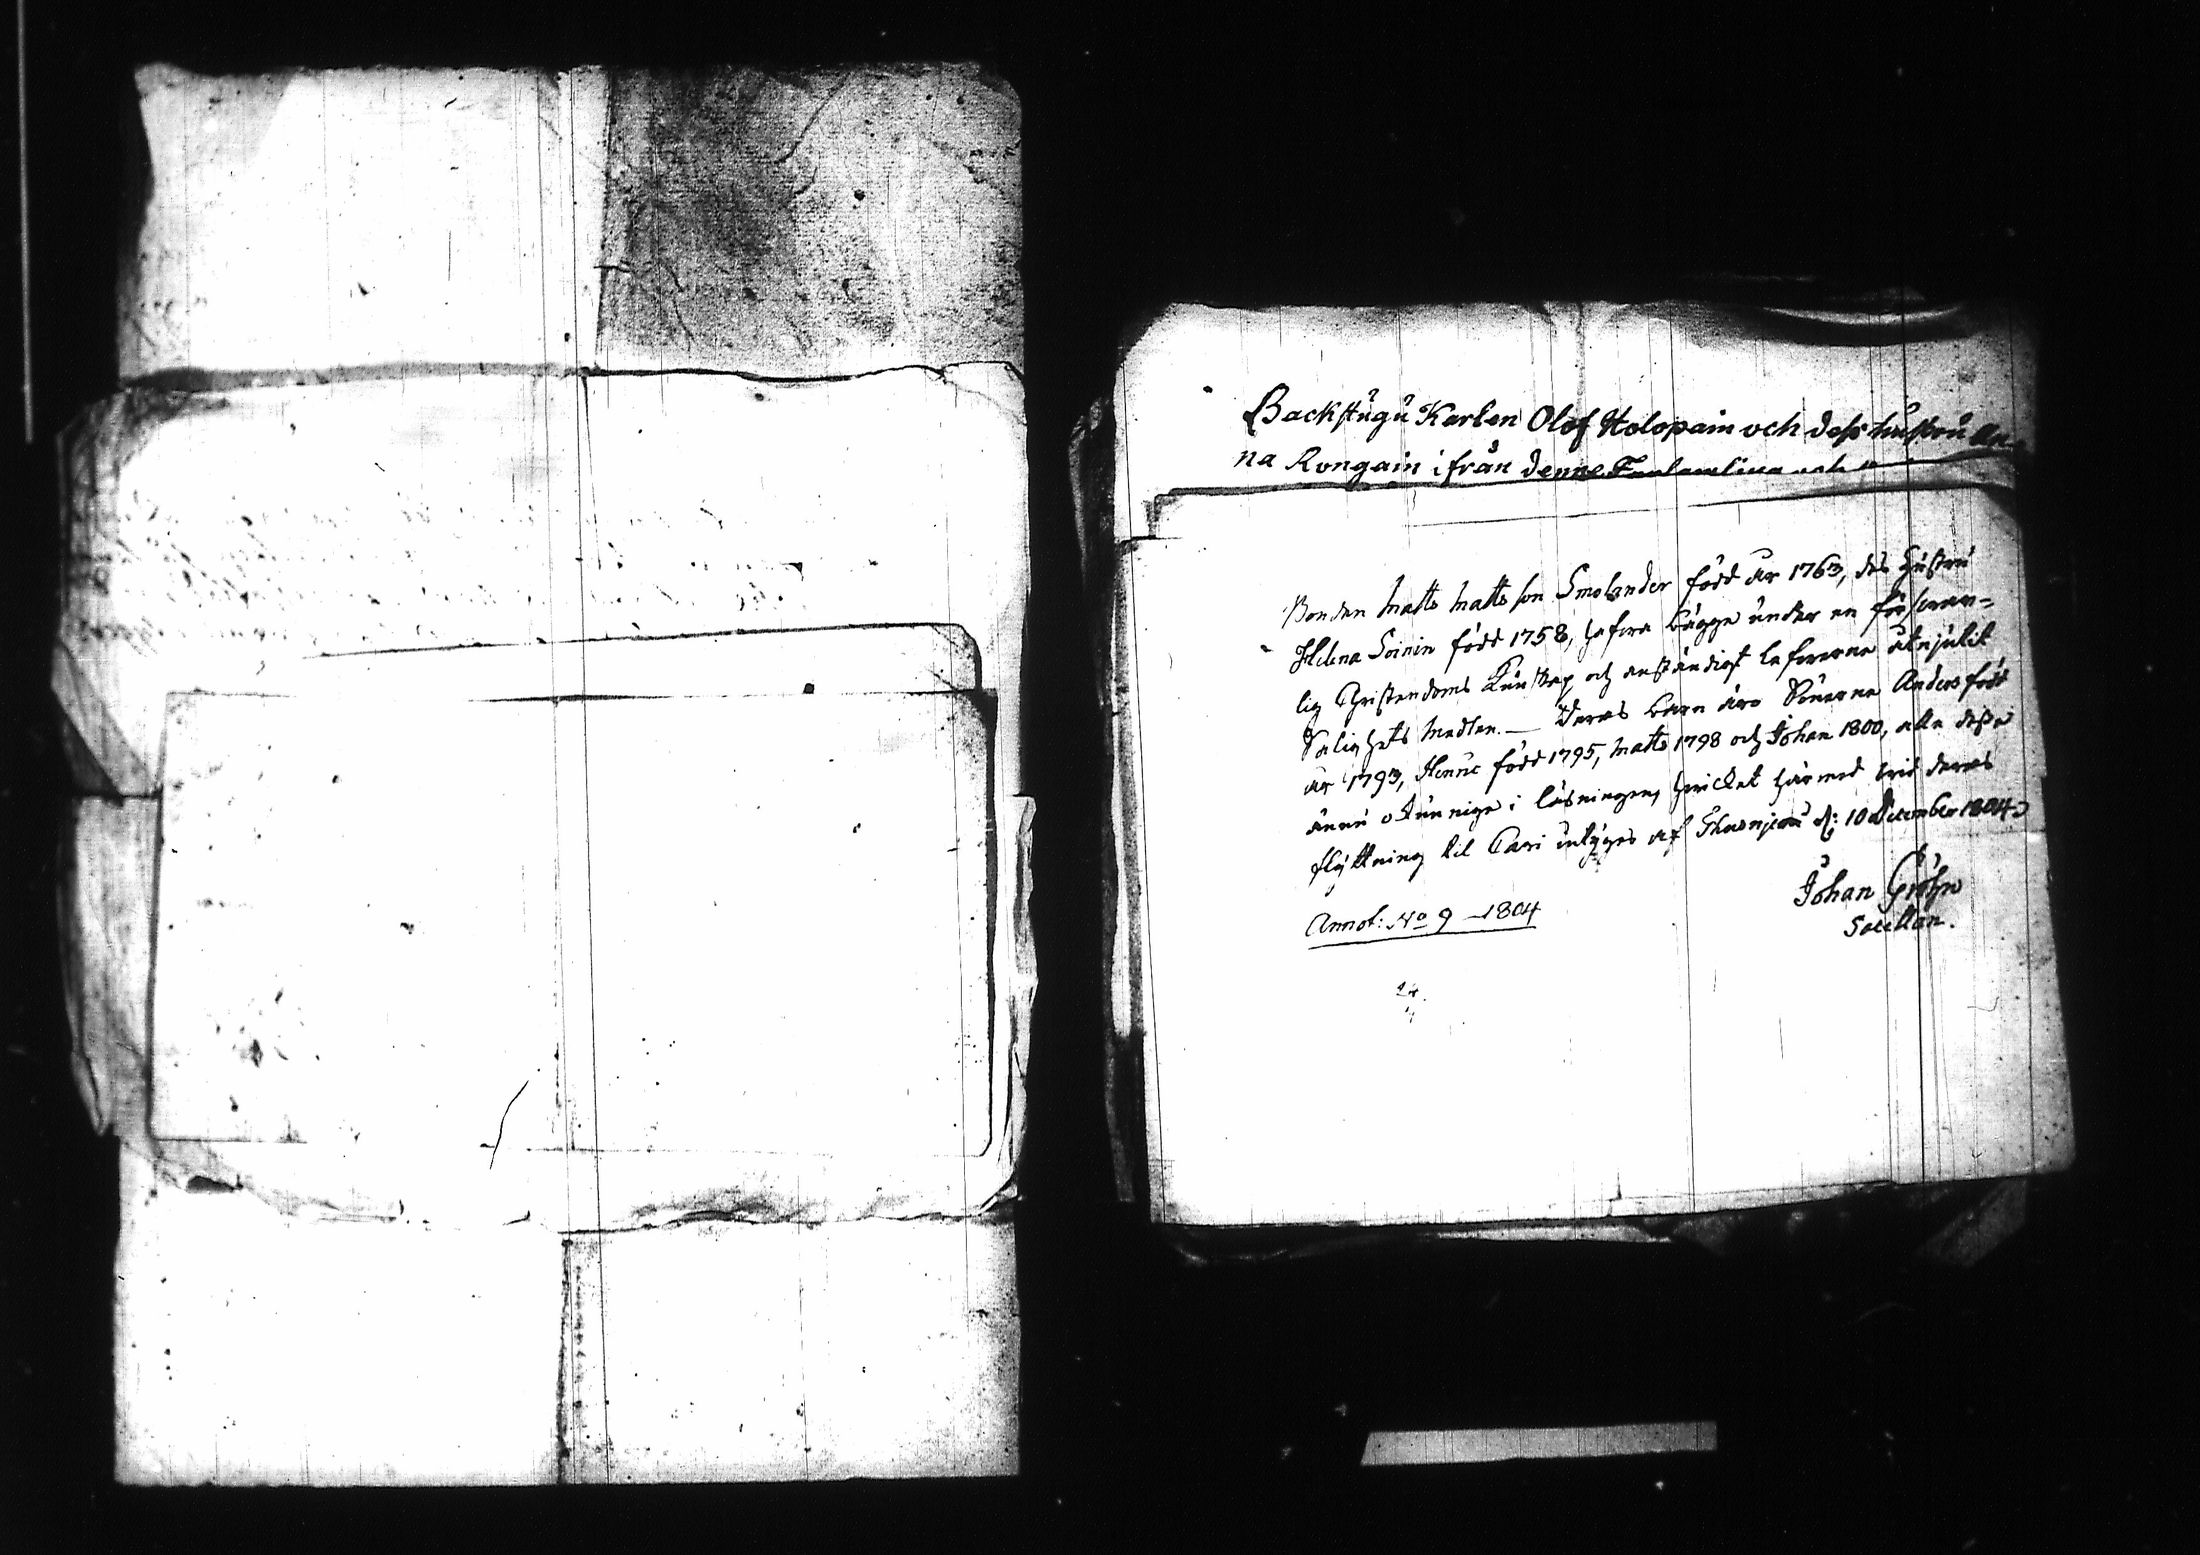 Backstugu Karlen Olof Holopain och dess hustru An-
na Rongain ifrån denne
Bonden Matts Mattsson Smolander född år 1763, des Hustru
Helena Soinin född 1758, hafva bägge under en försvar-
lig Christendoms Kunskap och anständigt lefverne åtnjutit
Salighets Medlen. — Deras barn äro Sönerna Anders född
år 1793, Henric född 1795, Matts 1798 och Johan 1800, alla dessa
ännu okunnige i läsningen, hvilcket härmed vid deras
flyttning til Cavi intyges af d: 10 December 1804
Johan Gröhn
Sacellan.
Annot: No 9 — 1804